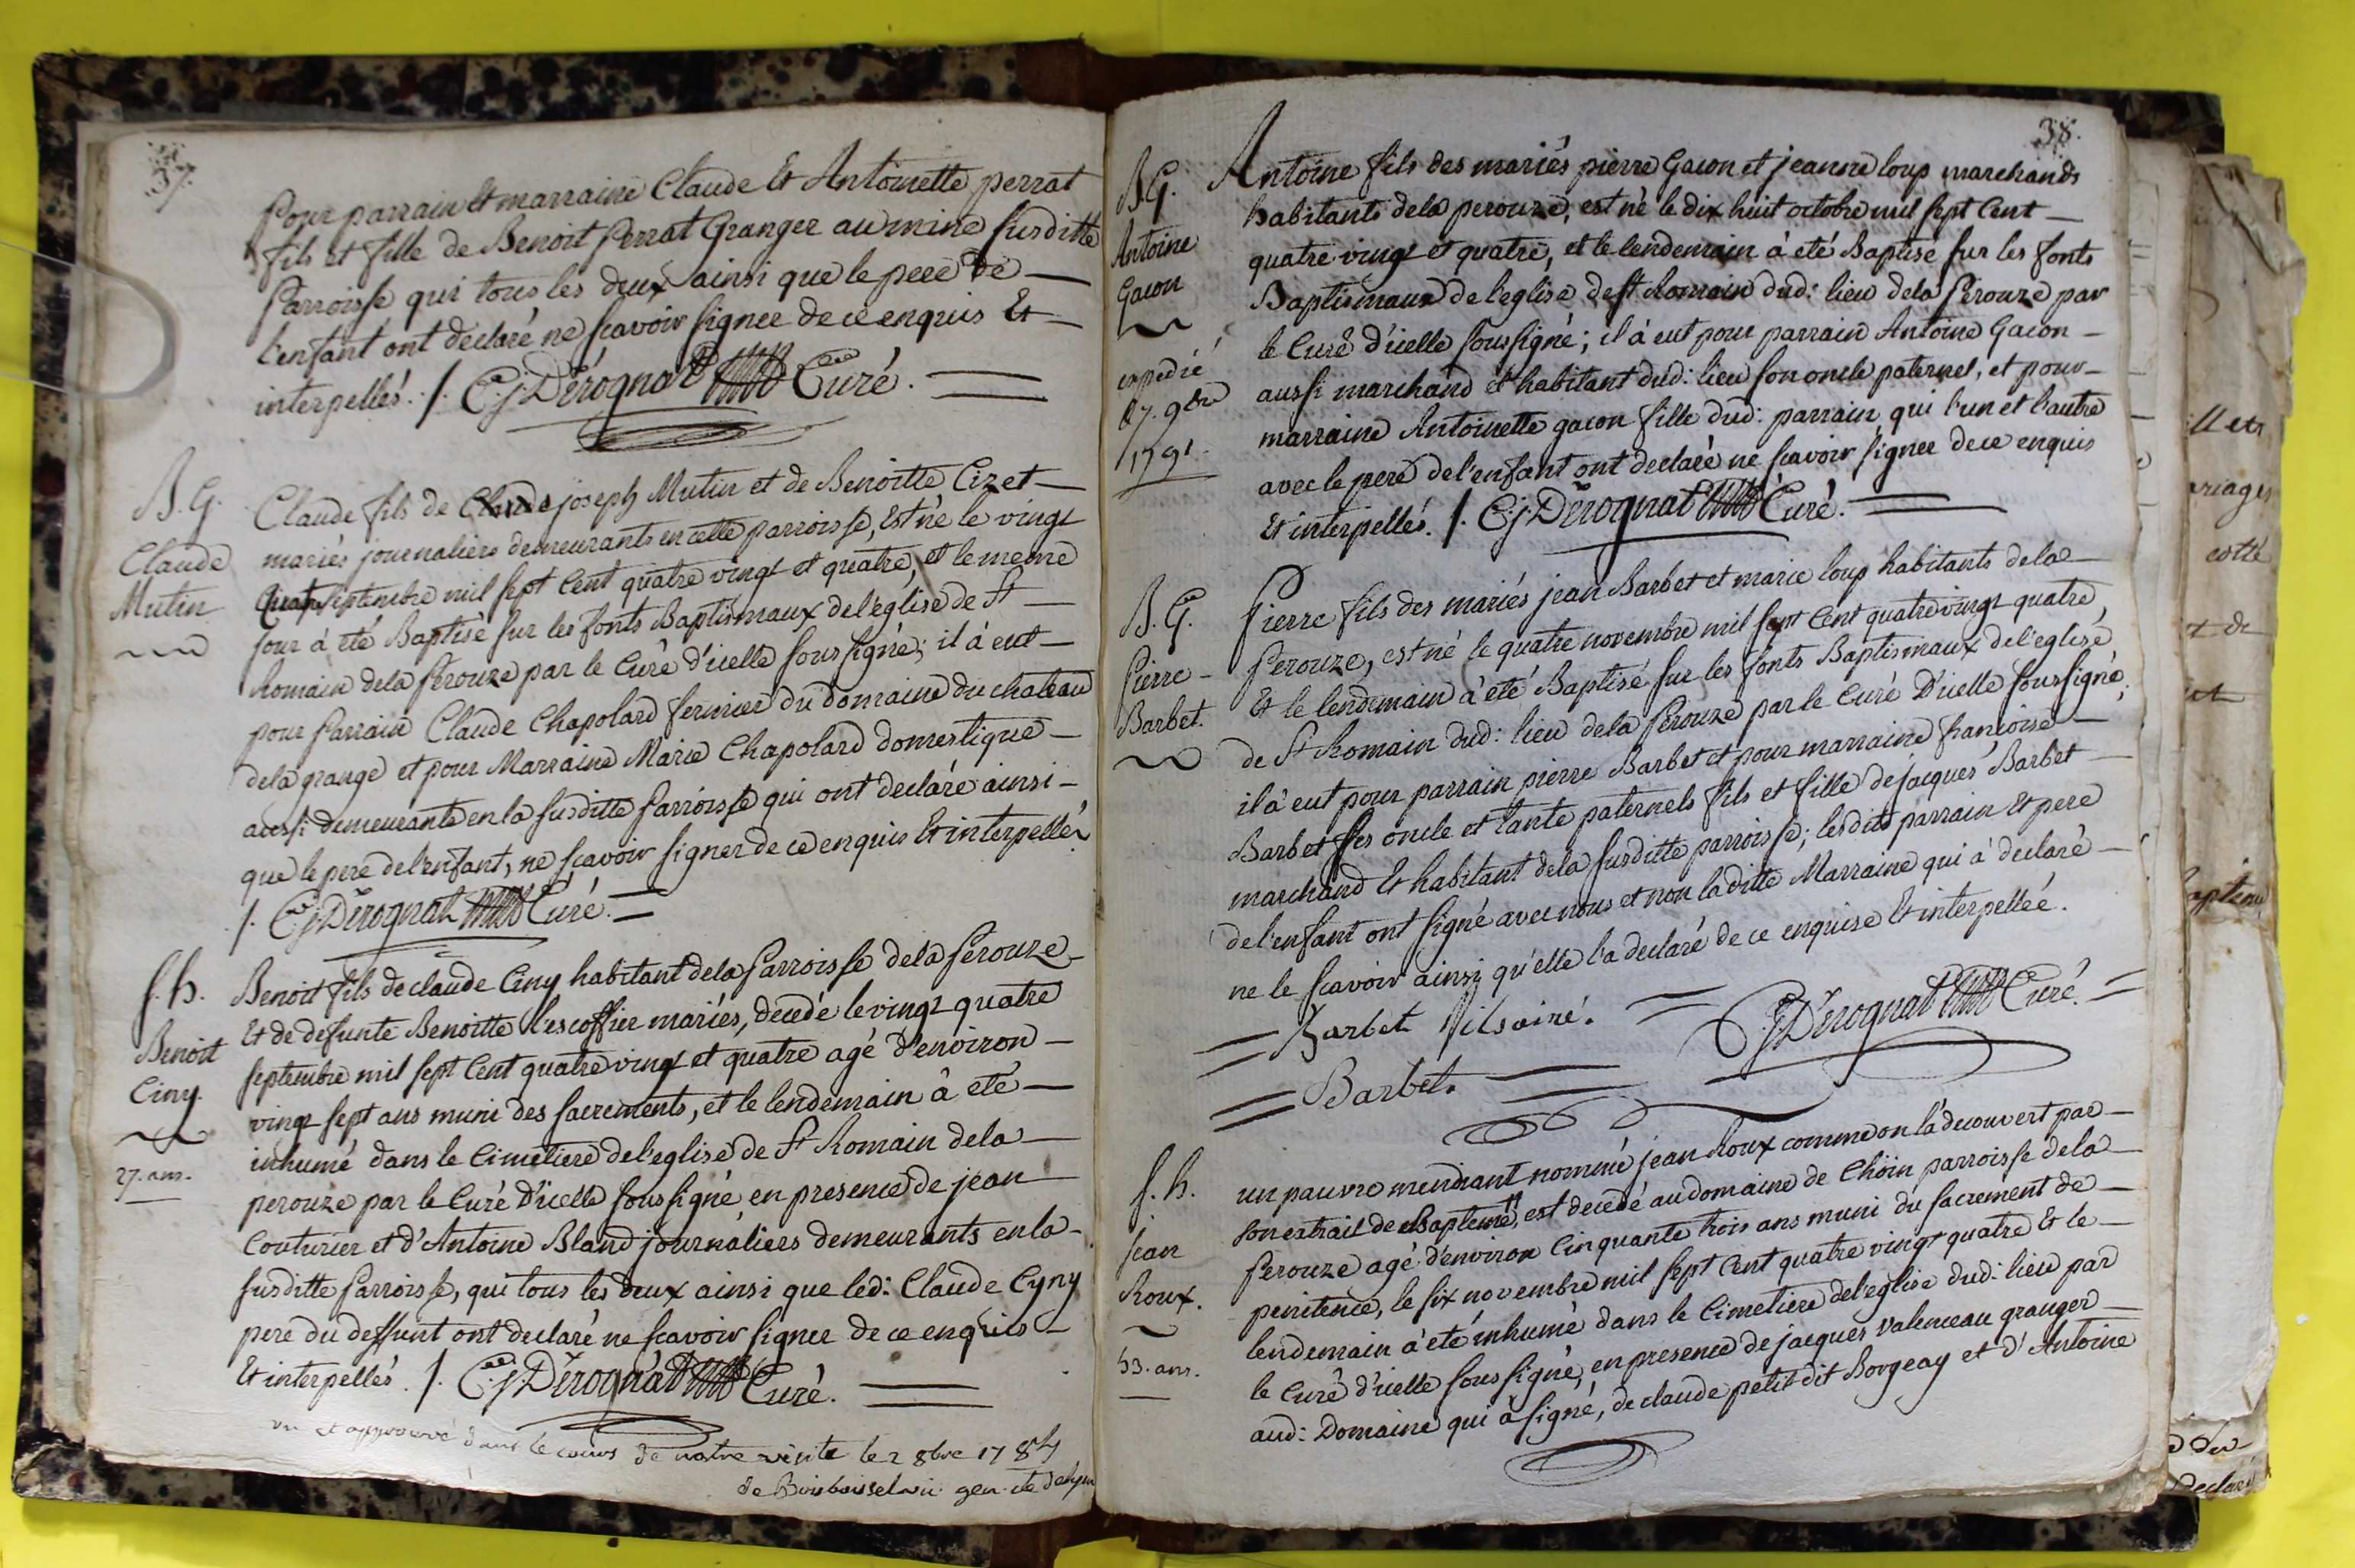 37.
Pour parrain Et marraine Claude Et Antoinette perrat
fils et fille de Benoit Perrat Granger au mine susditte
Parroisse qui tous les deux ainsi que le pere de
l'enfant ont declaré ne scavoir signer de ce enquis Et
interpellés. /. C. j. Dérognat Curé.
B. G.
Claude
Mutin
Claude fils de Claude joseph Mutin et de Benoitte Cizet
mariés journaliers demeurants en cette parroisse, Est né le vingt
quatre septembre mil sept Cent quatre vingt et quatre, et le meme
jour à été Baptisé sur les fonts Baptismaux de l'eglise de St
Romain dela Perouze par le Curé d'icelle soussigné; il à eut
pour Parrain Claude Chapolard fermier du domaine du chateau
dela grange et pour Marraine Marie Chapolard domestique
aussi demeurante en la susditte Parroisse qui ont declaré ainsi
que le pere de l'enfant, ne scavoir signer de ce enquis Et interpellés
/. C. j. Dérognat Curé.
f. h.
Benoit
Ciny.
27. ans.
Benoit fils de claude Ciny habitant dela Parroisse dela Perouze
Et de defunte Benoitte Lescoffier mariés, decedé le vingt quatre
septembre mil sept Cent quatre vingt et quatre agé d'environ
vingt sept ans muni des sacrements, et le lendemain à été
inhumé dans le Cimetiere de l'eglise de St Romain dela
perouze par le Curé d'icelle soussigné en presence de jean
Couturier et d'Antoine Bland journaliers demeurants en la
susditte Parroisse, qui tous les deux ainsi que led: Claude Cyny
pere du deffunt ont declaré ne scavoir signer de ce enquis
Et interpellés. /. C. j. Dérognat Curé.
vu et approuvé dans le cours de notre visite le 2 8bre 1784
de Boisboissel vic. gen. cte de Lyon
38.
B. G.
Antoine
Gacon
expedié
27. 9bre
1791.
Antoine fils des mariés pierre Gacon et jeanne loup marchands
habitants dela perouze, est né le dix huit octobre mil sept Cent
quatre vingt et quatre, et le lendemain à été Baptisé sur les fonts
Baptismaux de l'eglise de St Romain dud: lieu dela Perouze par
le Curé d'icelle soussigné; il à eut pour parrain Antoine Gacon
aussi marchand et habitant dud: lieu son oncle paternel, et pour
marraine Antoinette gacon fille dud: parrain, qui l'un et l'autre
avec le pere de l'enfant ont declaré ne scavoir signer de ce enquis
Et interpellés. /. C. j. Dérognat Curé.
B. G.
Pierre
Barbet.
Pierre fils des mariés jean Barbet et marie loup habitants dela
Perouze, est né le quatre novembre mil sept Cent quatre vingt quatre,
Et le lendemain à été Baptisé sur les fonts Baptismaux de l'eglise
de St Romain dud: lieu dela Perouze par le Curé D'icelle soussigné;
il à eut pour parrain pierre Barbet et pour marraine francoise
Barbet ses oncle et tante paternels fils et fille de jacques Barbet
marchand Et habitant dela susditte parroisse; lesdits parrain Et pere
de l'enfant ont signé avec nous et non laditte Marraine qui à declaré
ne le scavoir ainsi qu'elle l'a declaré de ce enquise Et interpellée.
Barbet fils ainé. C. j. Dérognat Curé.
Barbet.
f. h.
jean
Roux.
53. ans.
un pauvre mendiant nommé jean Roux comme on l'à decouvert par
son extrait de Bapteme, est decedé au domaine de Choin parroisse dela
Perouze agé d'environ Cinquante trois ans muni du sacrement de
penitence, le six novembre mil sept Cent quatre vingt quatre Et le
lendemain à été inhumé dans le Cimetiere de l'eglise dud: lieu par
le Curé d'icelle soussigné, en presence de jacques Valenceau granger
aud: Domaine qui à signé, de claude petit dit Borgeay et d'Antoine